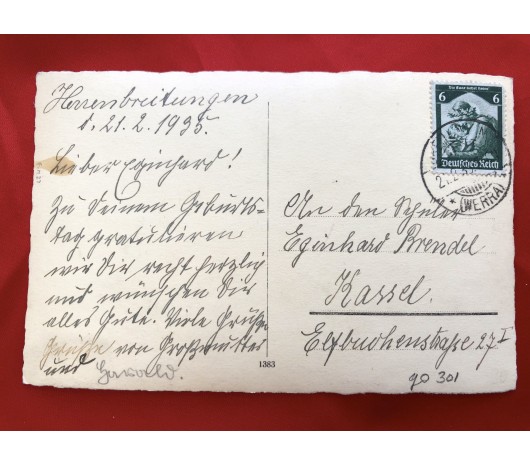 Herrenbreitungen
d. 21.2.1935.
Lieber Eginhard!
Zu Deinem Geburts-
tag gratulieren
wir Dir recht herzlich
und wünschen Dir
alles Gute. Viele Grüße
Grüße von Großmutter
und Harald.
1383
Die Saar kehrt heim!
6 6
Deutsches Reich
(WERRA)
An den Schüler
Eginhard Brendel
Kassel.
Elfbuchenstraße 27 I
go 301